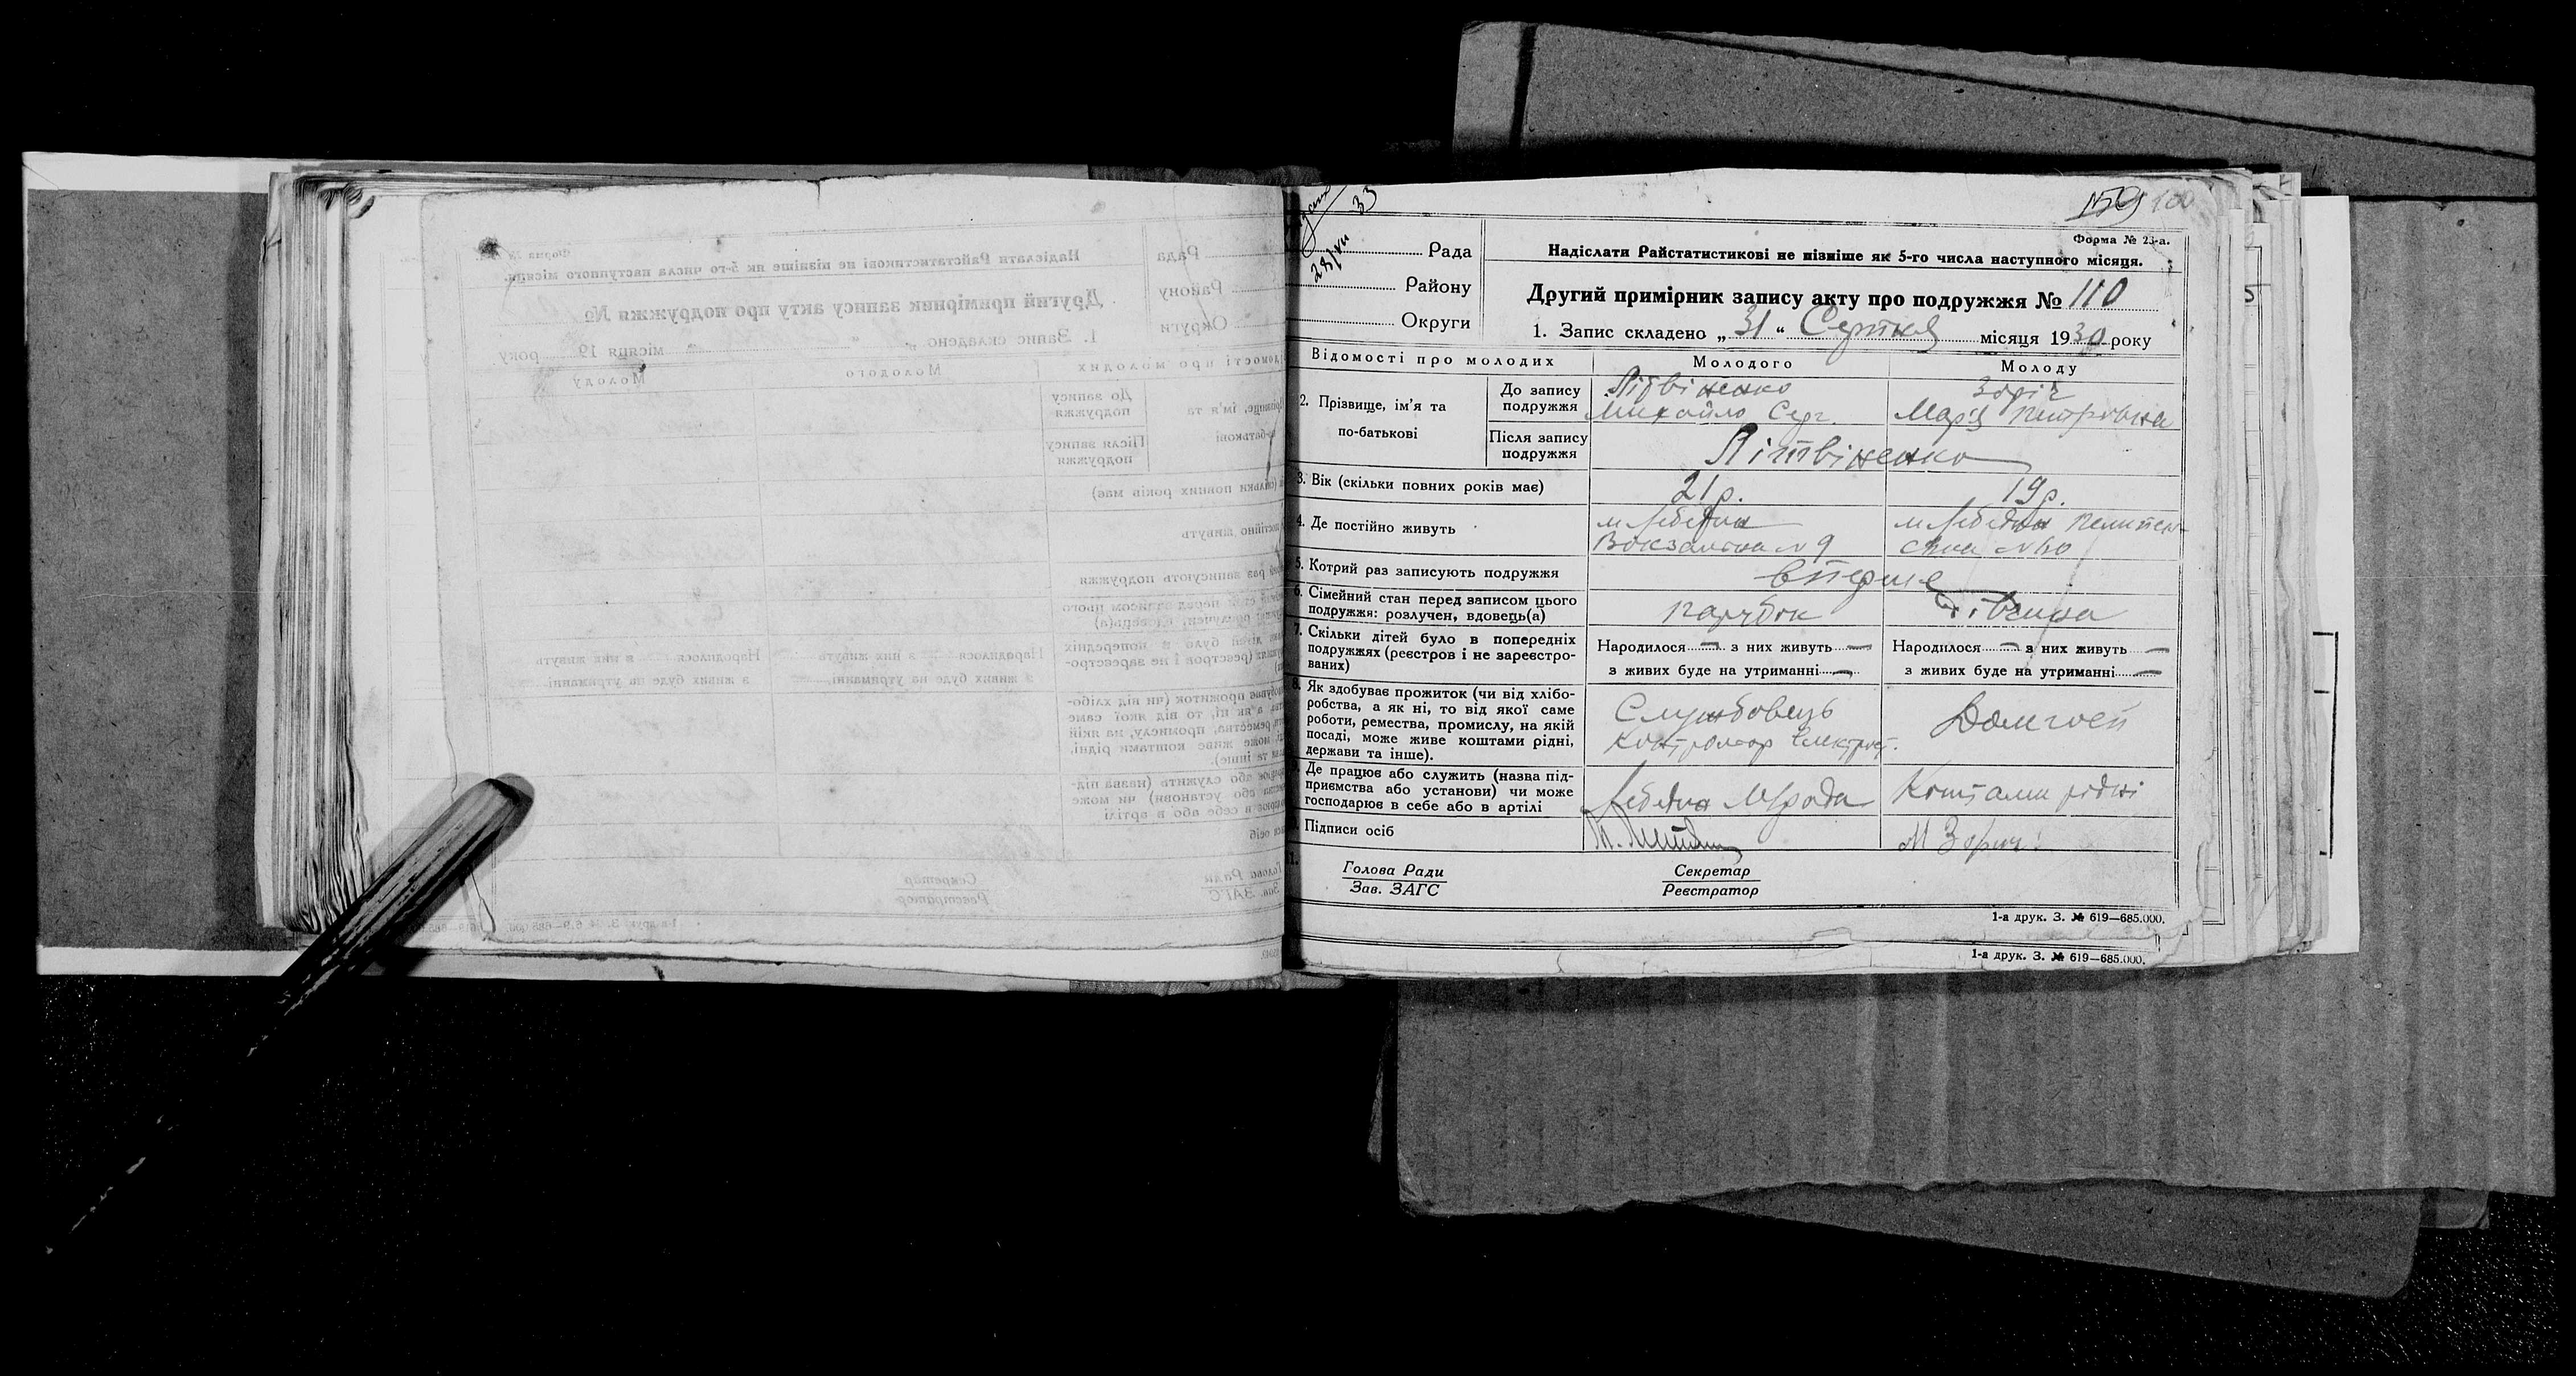 33
159 160
28/VII
Форма № 23-а.
Рада
Району
Округи
Надіслати Райстатистикові не пізніше як 5-го числа наступного місяця.
Другий примірник запису акту про подружжя № 110
1. Запис складено „31“ Серпня місяця 1930 року
Відомості про молодих
Молодого
Молоду
2. Прізвище, ім’я та
по-батькові
До запису
подружжя
Літвіненко
Михайло Серг.
Зоріч
Мар'я Петровна
Після запису
подружжя
Літвіненко
3. Вік (скільки повних років має)
21 р.
19 р.
4. Де постійно живуть
м Лебедин
Вокзальна № 9
м Лебедин
5. Котрий раз записують подружжя
вперше
6. Сімейний стан перед записом цього
подружжя: розлучен, вдовець(а)
парубок
дівчина
7. Скільки дітей було в попередніх
подружжях (реєстров і не зареєстро-
ваних)
Народилося — з них живуть —
з живих буде на утриманні —
Народилося — з них живуть —
з живих буде на утриманні —
8. Як здобуває прожиток (чи від хлібо-
робства, а як ні, то від якої саме
роботи, ремества, промислу, на якій
посаді, може живе коштами рідні,
держави та інше).
Службовець
Контролор Електрост.
Домгосп
Де працює або служить (назва під-
приємства або установи) чи може
господарює в себе або в артілі
Лебедин Мрада
Коштами рідні
Підписи осіб
М Зорич
11.
Голова Ради
Зав. ЗАГС
Секретар
Реєстратор
1-а друк. З. № 619—685.000.
1-а друк. З. № 619—685.000.